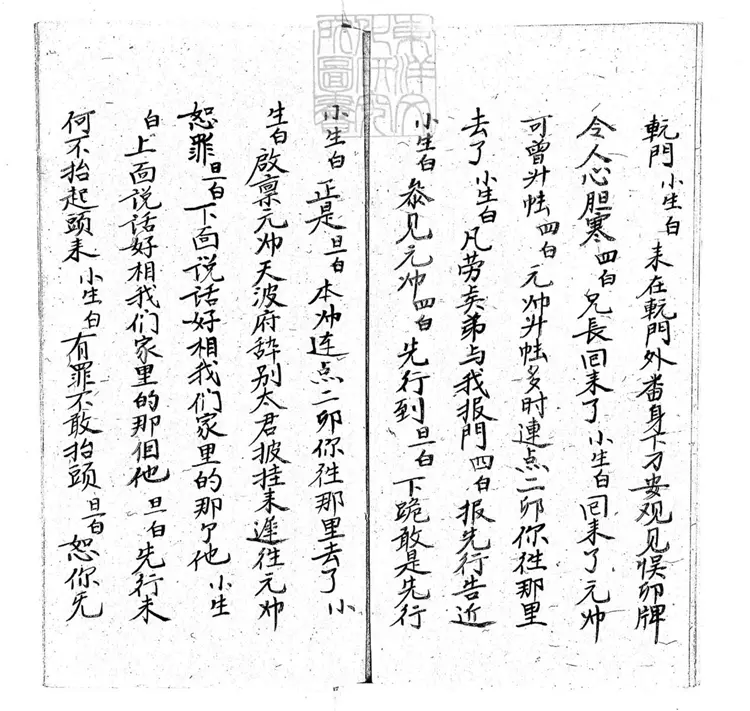 軏門小生白来在軏門外畨身下刀安观见悮卯牌
令人心胆寒四白兄長回来了小生白回来了元帅
可曾升帐四白元帅升帐多时連点二卯你徃那里
去了小生白凡劳矣弟与我报門四白报先行告近
小生白叅见元帅四白先行到旦白下跪敢是先行
小生白正是旦白本帅连点二卯你徃那里去了小
生白啟禀元帅天波府辞别太君披挂来遲徃元帅
恕罪旦白下面说话好相我们家里的那个他小生
白上面说话好相我们家里的那個他旦白先行未
何不抬起頭来小生白有罪不敢抬頭旦白恕你旡